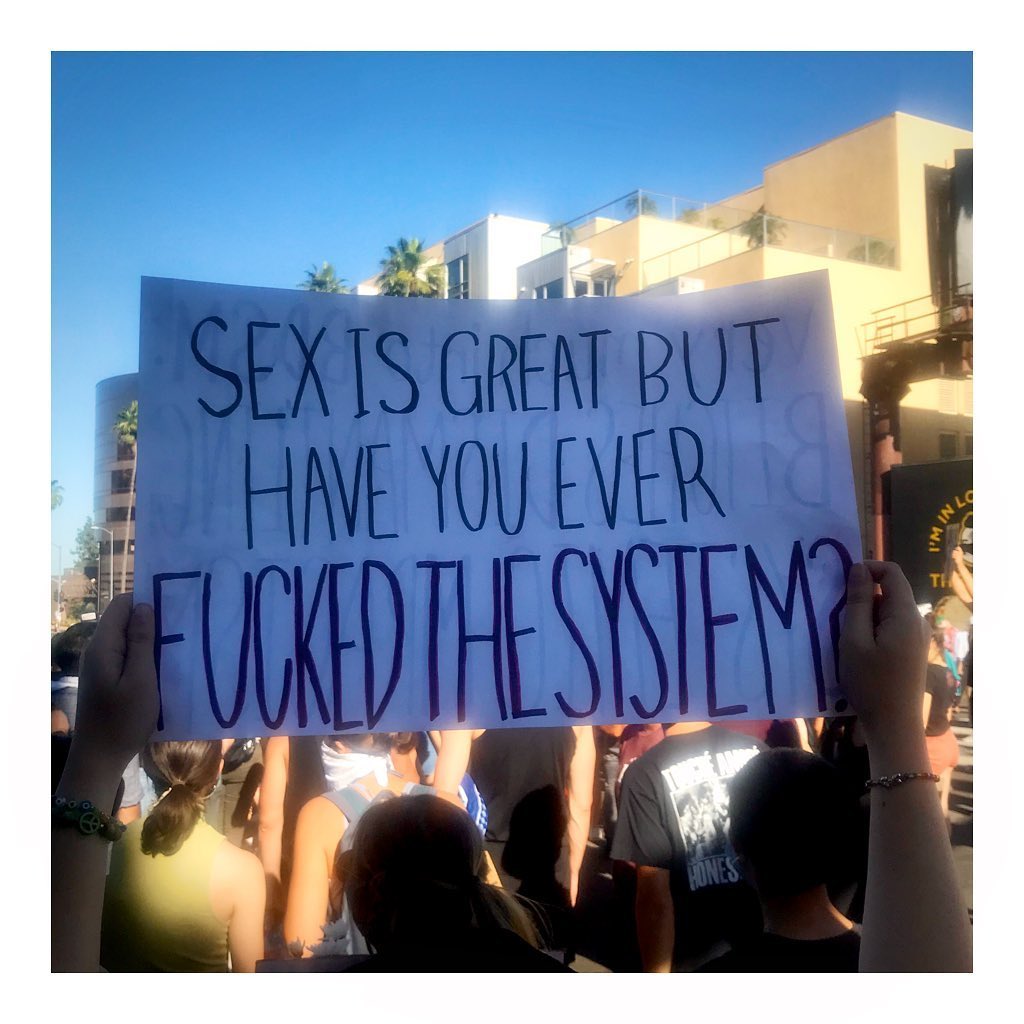 SEX IS GREAT BUT
HAVE YOU EVER
FUCKED THE SYSTEM?
I'M IN LO
HONES